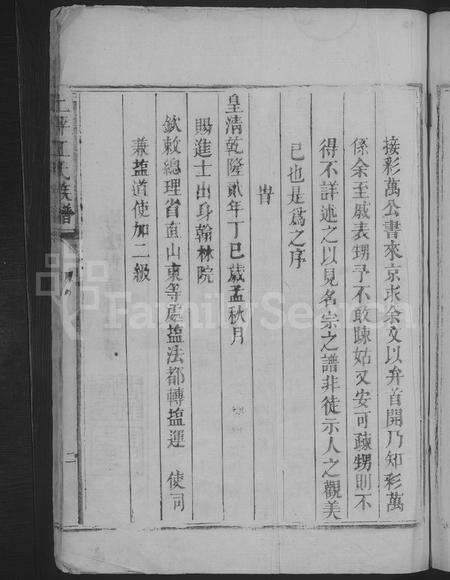 接彩萬公書來京求余文以弁首開乃知彩萬
係余至戚表甥予不敢踈姑又安可疎甥則不
得不詳述之以見名宗之譜非徒示人之觀美
已也是為之序
旹
皇清乾隆貳年丁巳歲孟秋月
賜進士出身翰林院
欽敕總理省直山東等處塩法都轉塩運 使司
兼塩道使加二級
江氏族譜
二
FamilySearch